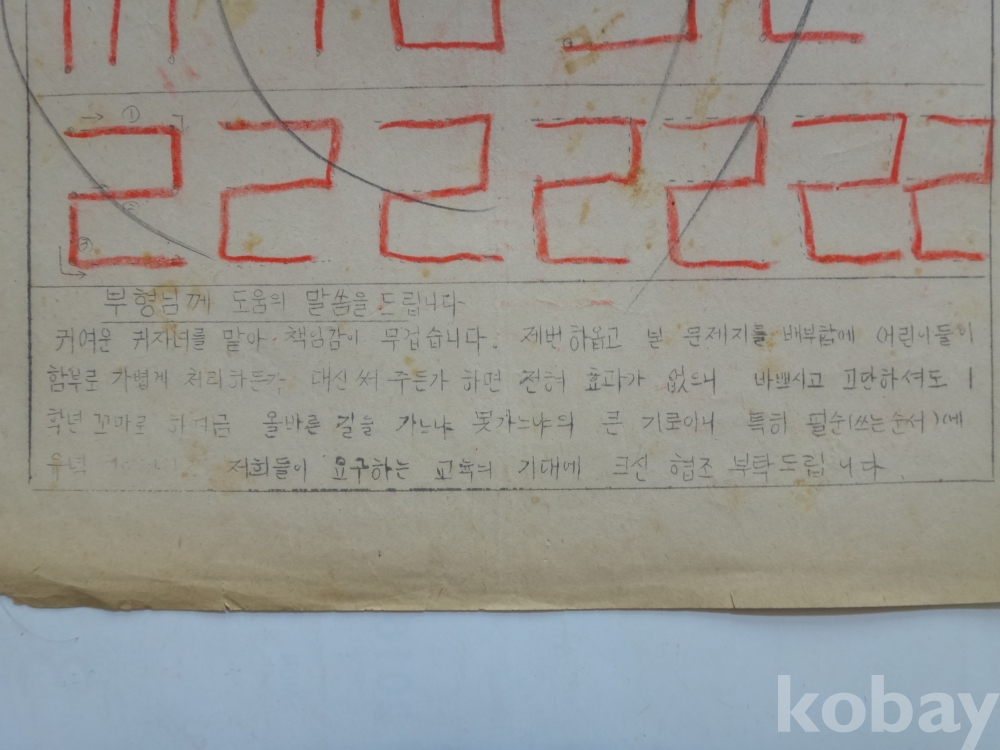 ① ② ③
ㄹ ㄹ ㄹ ㄹ ㄹ ㄹ ㄹ
부형님께 도움의 말씀을 드립니다
귀여운 귀자녀를 맡아 책임감이 무겁습니다. 제번하옵고 본 문제지를 배부함에 어린이들이
함부로 가볍게 처리하든가 대신 써 주든가 하면 전혀 효과가 없으니 바쁘시고 고단하셔도 1
학년 꼬마로 하여금 올바른 길을 가느냐 못가느냐의 큰 기로이니 특히 필순(쓰는순서)에
유념 저희들이 요구하는 교육의 기대에 크신 협조 부탁드립니다
kobay